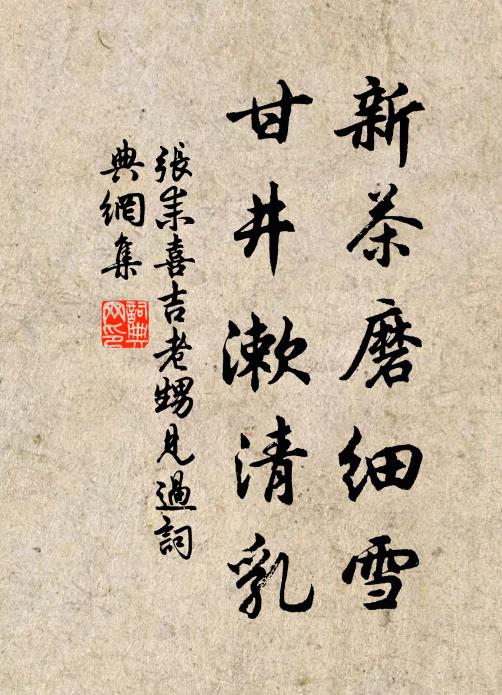 新茶磨細雪
甘井漱清乳
張耒喜吉老甥見過詞
典網集
詞典
网印